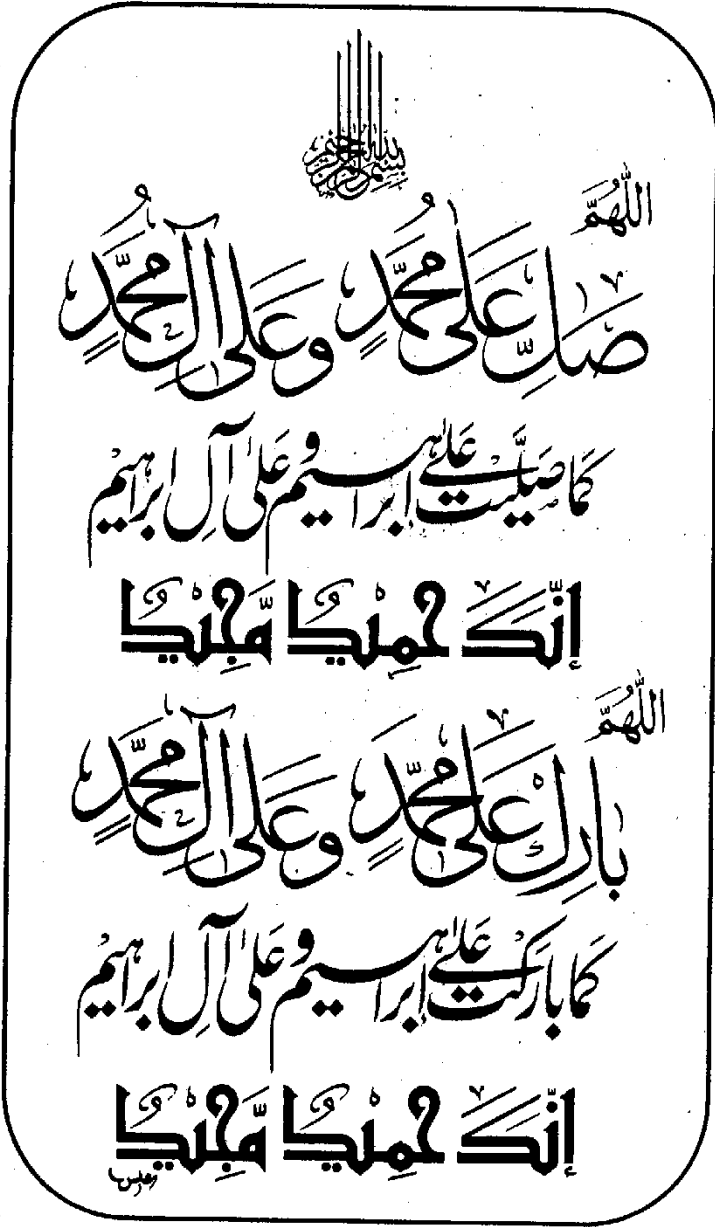 بسم الله الرحمن الرحيم
اللّٰهُمَّ
صَلِّ عَلىٰ مُحَمَّدٍ وَعَلىٰ آلِ مُحَمَّدٍ
كَمَا صَلَّيْتَ عَلىٰ إِبْرَاهِيمَ وَعَلىٰ آلِ إبراهيم
إِنَّكَ حَمِيْدٌ مَّجِيْدٌ
اللّٰهُمَّ
بَارِكْ عَلىٰ مُحَمَّدٍ وَعَلىٰ آلِ مُحَمَّدٍ
كَمَا بَارَكْتَ عَلىٰ إِبْرَاهِيمَ وَعَلىٰ آلِ إبراهيم
إِنَّكَ حَمِيْدٌ مَّجِيْدٌ